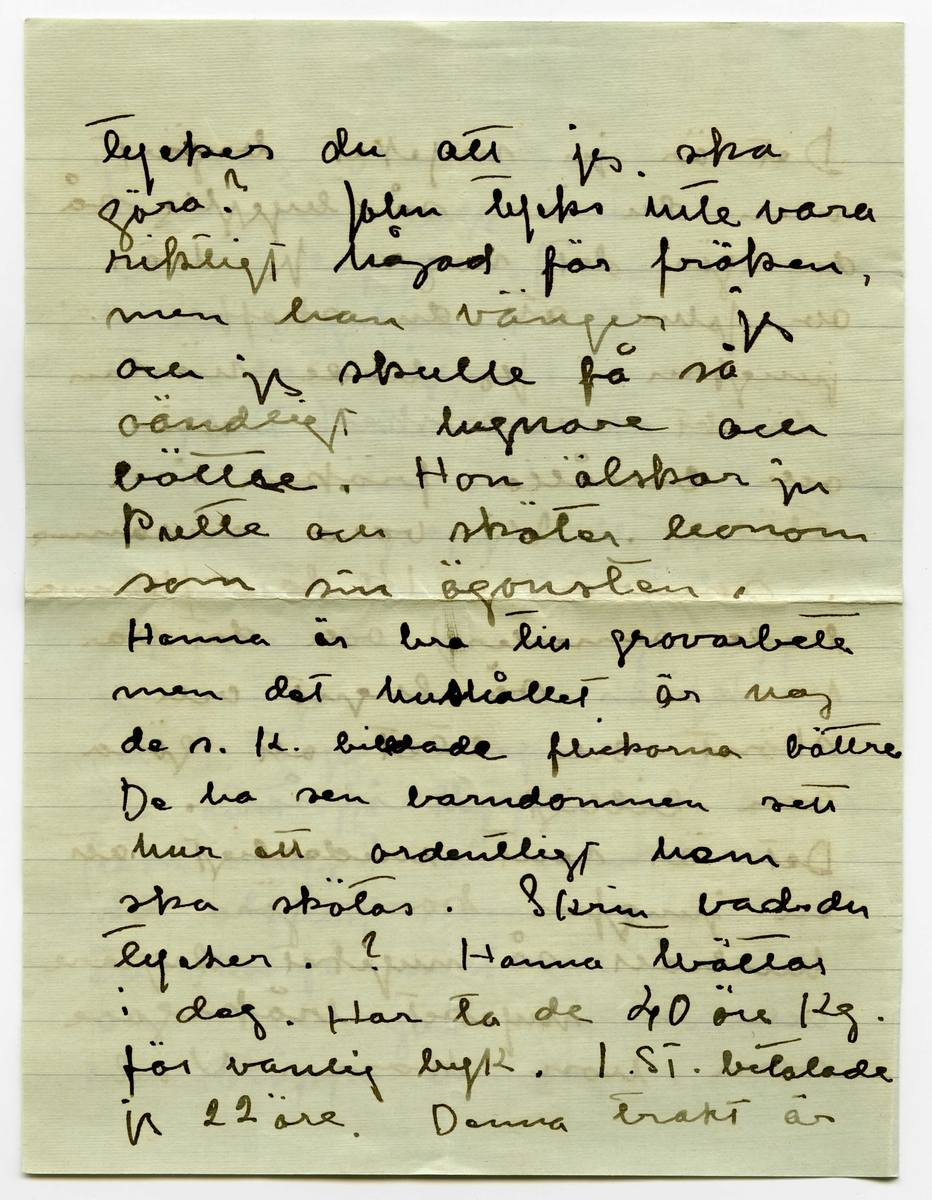 tycker du att jag ska
göra? John tycks inte vara
riktigt hågad för fröken,
men han vänjer sig
och jag skulle få så
oändligt lugnare och
bättre. Hon älskar ju
Putte och sköter honom
som sin ögonsten.
Hanna är bra till grovarbete
men det hushållet är nog
de s. k. bildade flickorna bättre
De ha sen barndommen sett
hur ett ordentligt hem
ska skötas. Skriv vad du
tycker. ? Hanna tvättar
i dag. Här ta de 40 öre Kg.
för vanlig byk. I. ST. betalade
jag 22 öre. Denna trakt är